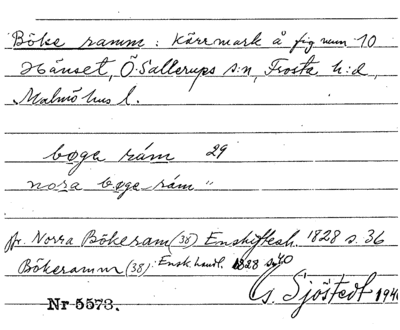 Böke ramm : Kärrmark å fig num 10
Hänset, Ö. Sallerups s:n, Frosta h:d,
Malmöhus l.
bøga rám 29
nora bøga rám "
jfr. Norra Bökeram (38) Enskiftesh. 1828 s. 36
Bökeramm (38): Ensk.handl. 1828 s. 40
Nr 5573.
G. Sjöstedt 194